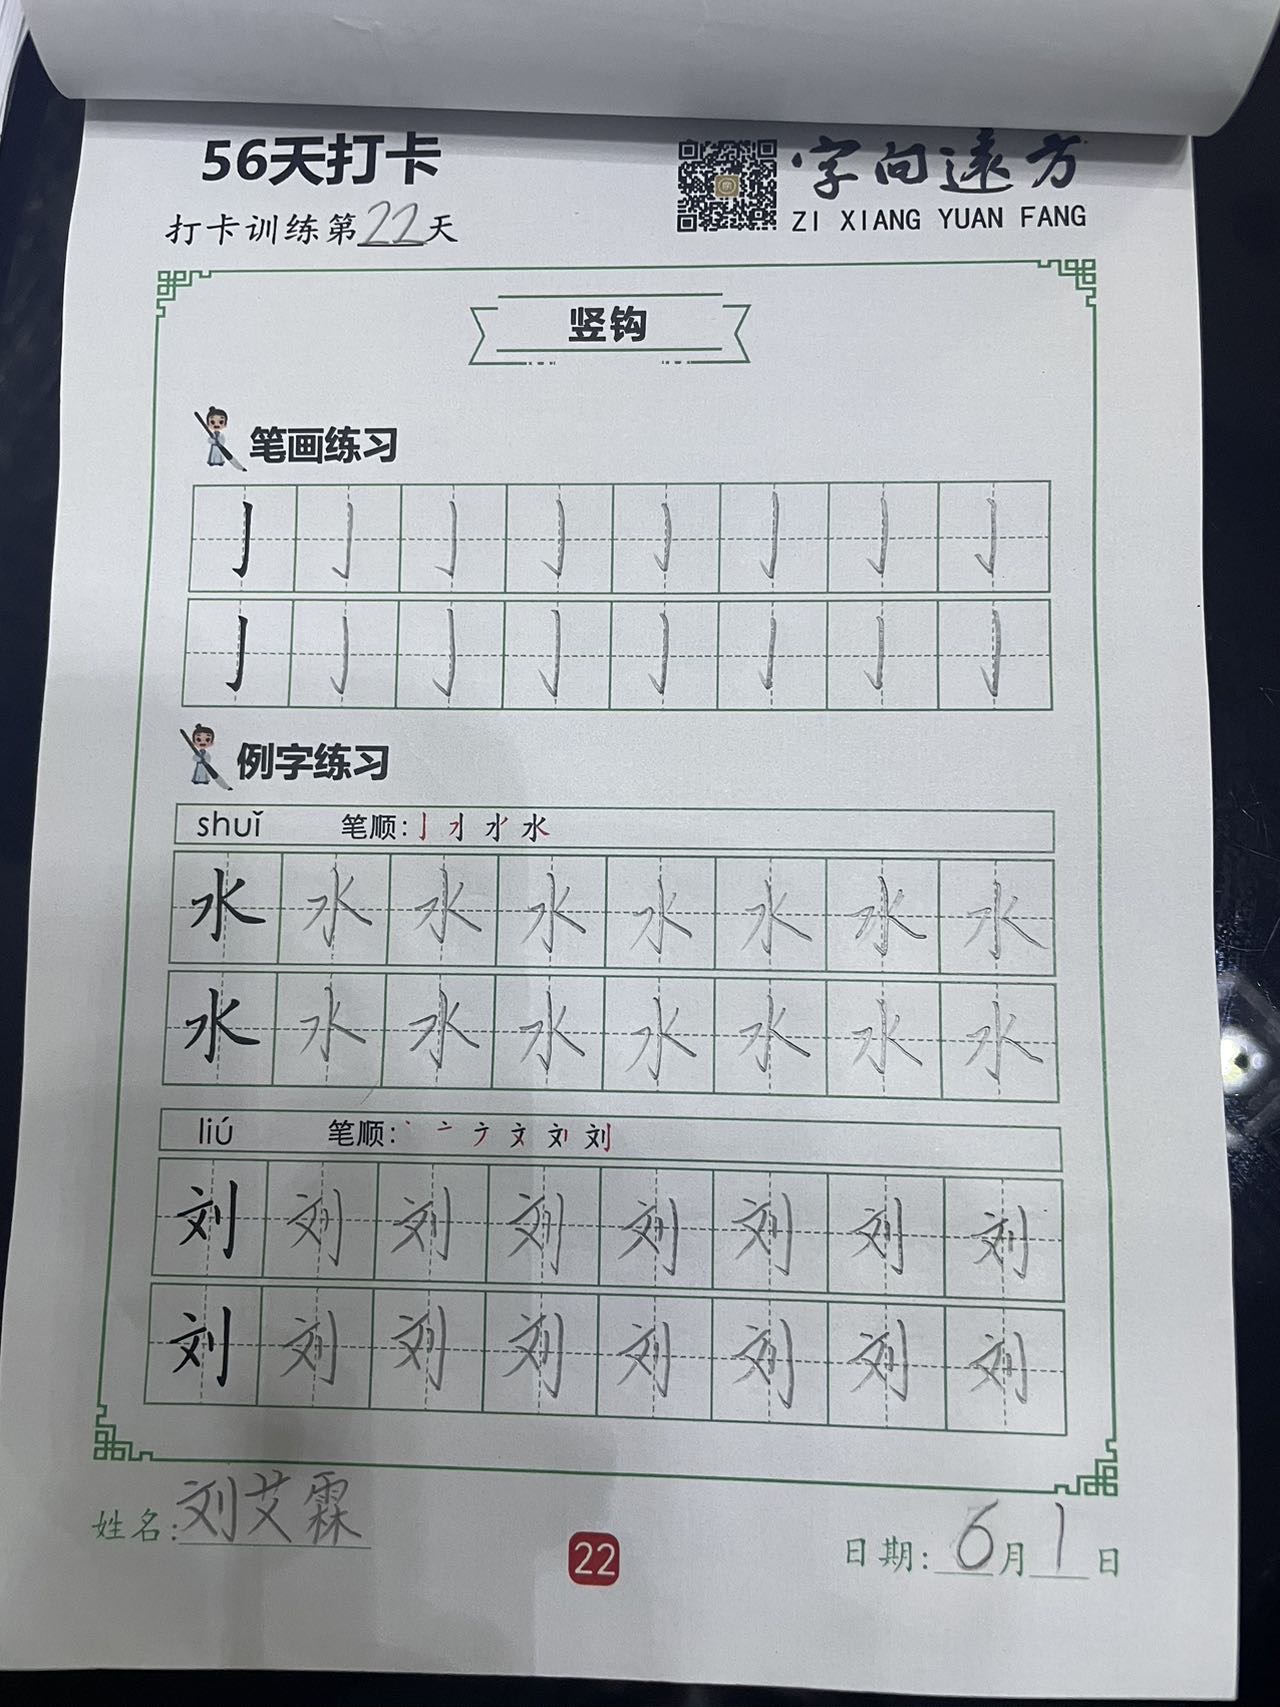 56天打卡
字向遠方
ZI XIANG YUAN FANG
打卡训练第22天
竖钩
笔画练习
亅亅亅亅亅亅亅亅
亅亅亅亅亅亅亅亅
例字练习
shuǐ 笔顺: 水
水水水水水水水水
水水水水水水水水
liú 笔顺: 丶 亠 ナ 文 刘
刘刘刘刘刘刘刘刘
刘刘刘刘刘刘刘刘
姓名:刘艾霖
22
日期:6月1日